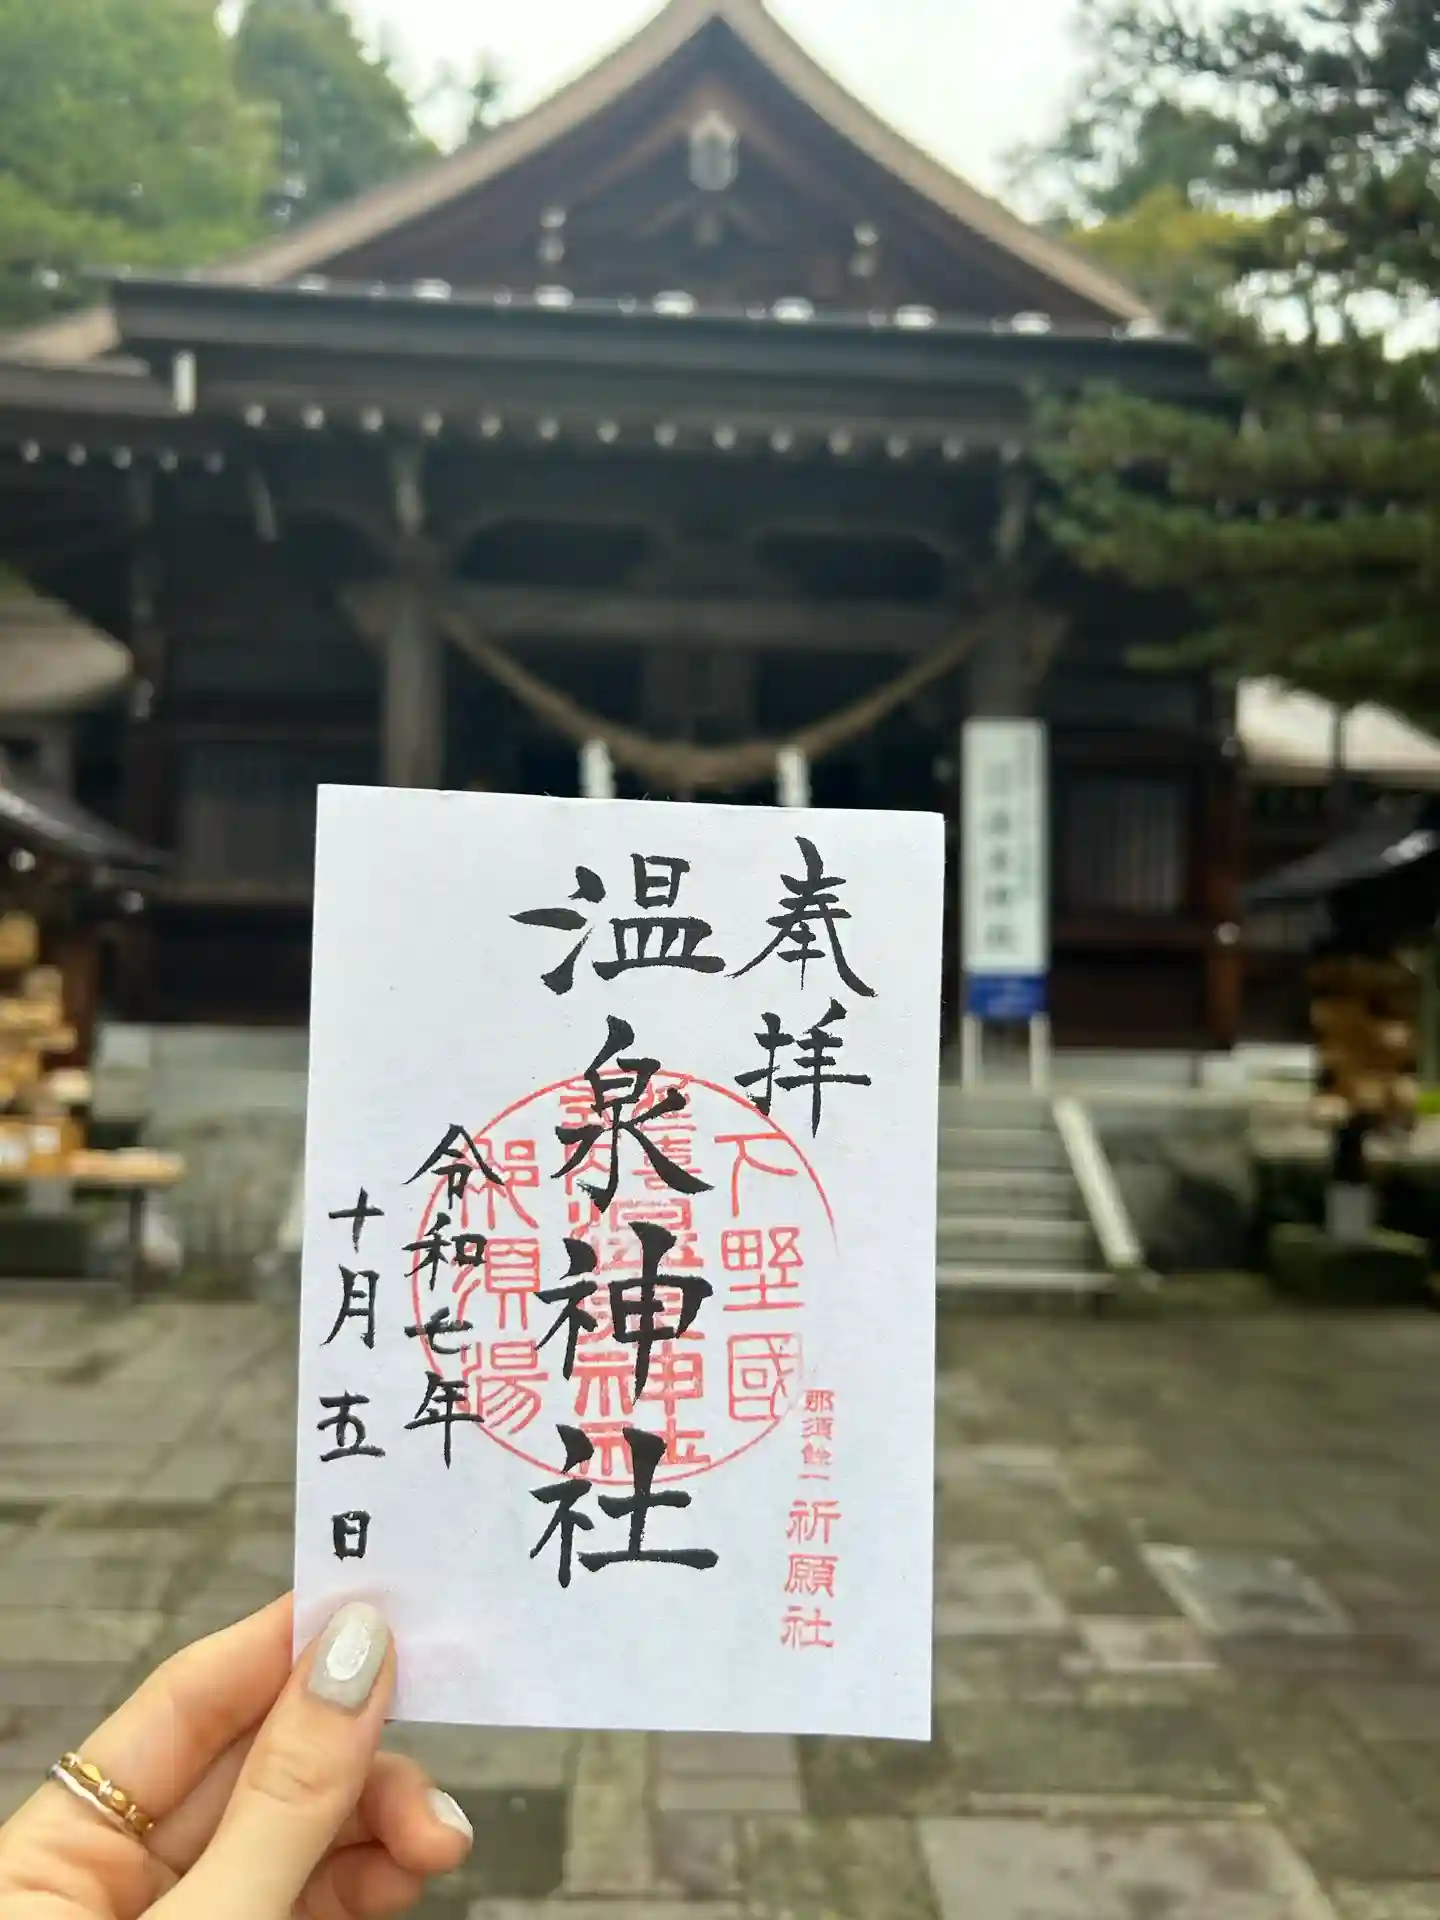 奉拝
下野國
温泉神社
温泉神社
那須湯
令和七年
十月五日
那須余一
祈願社